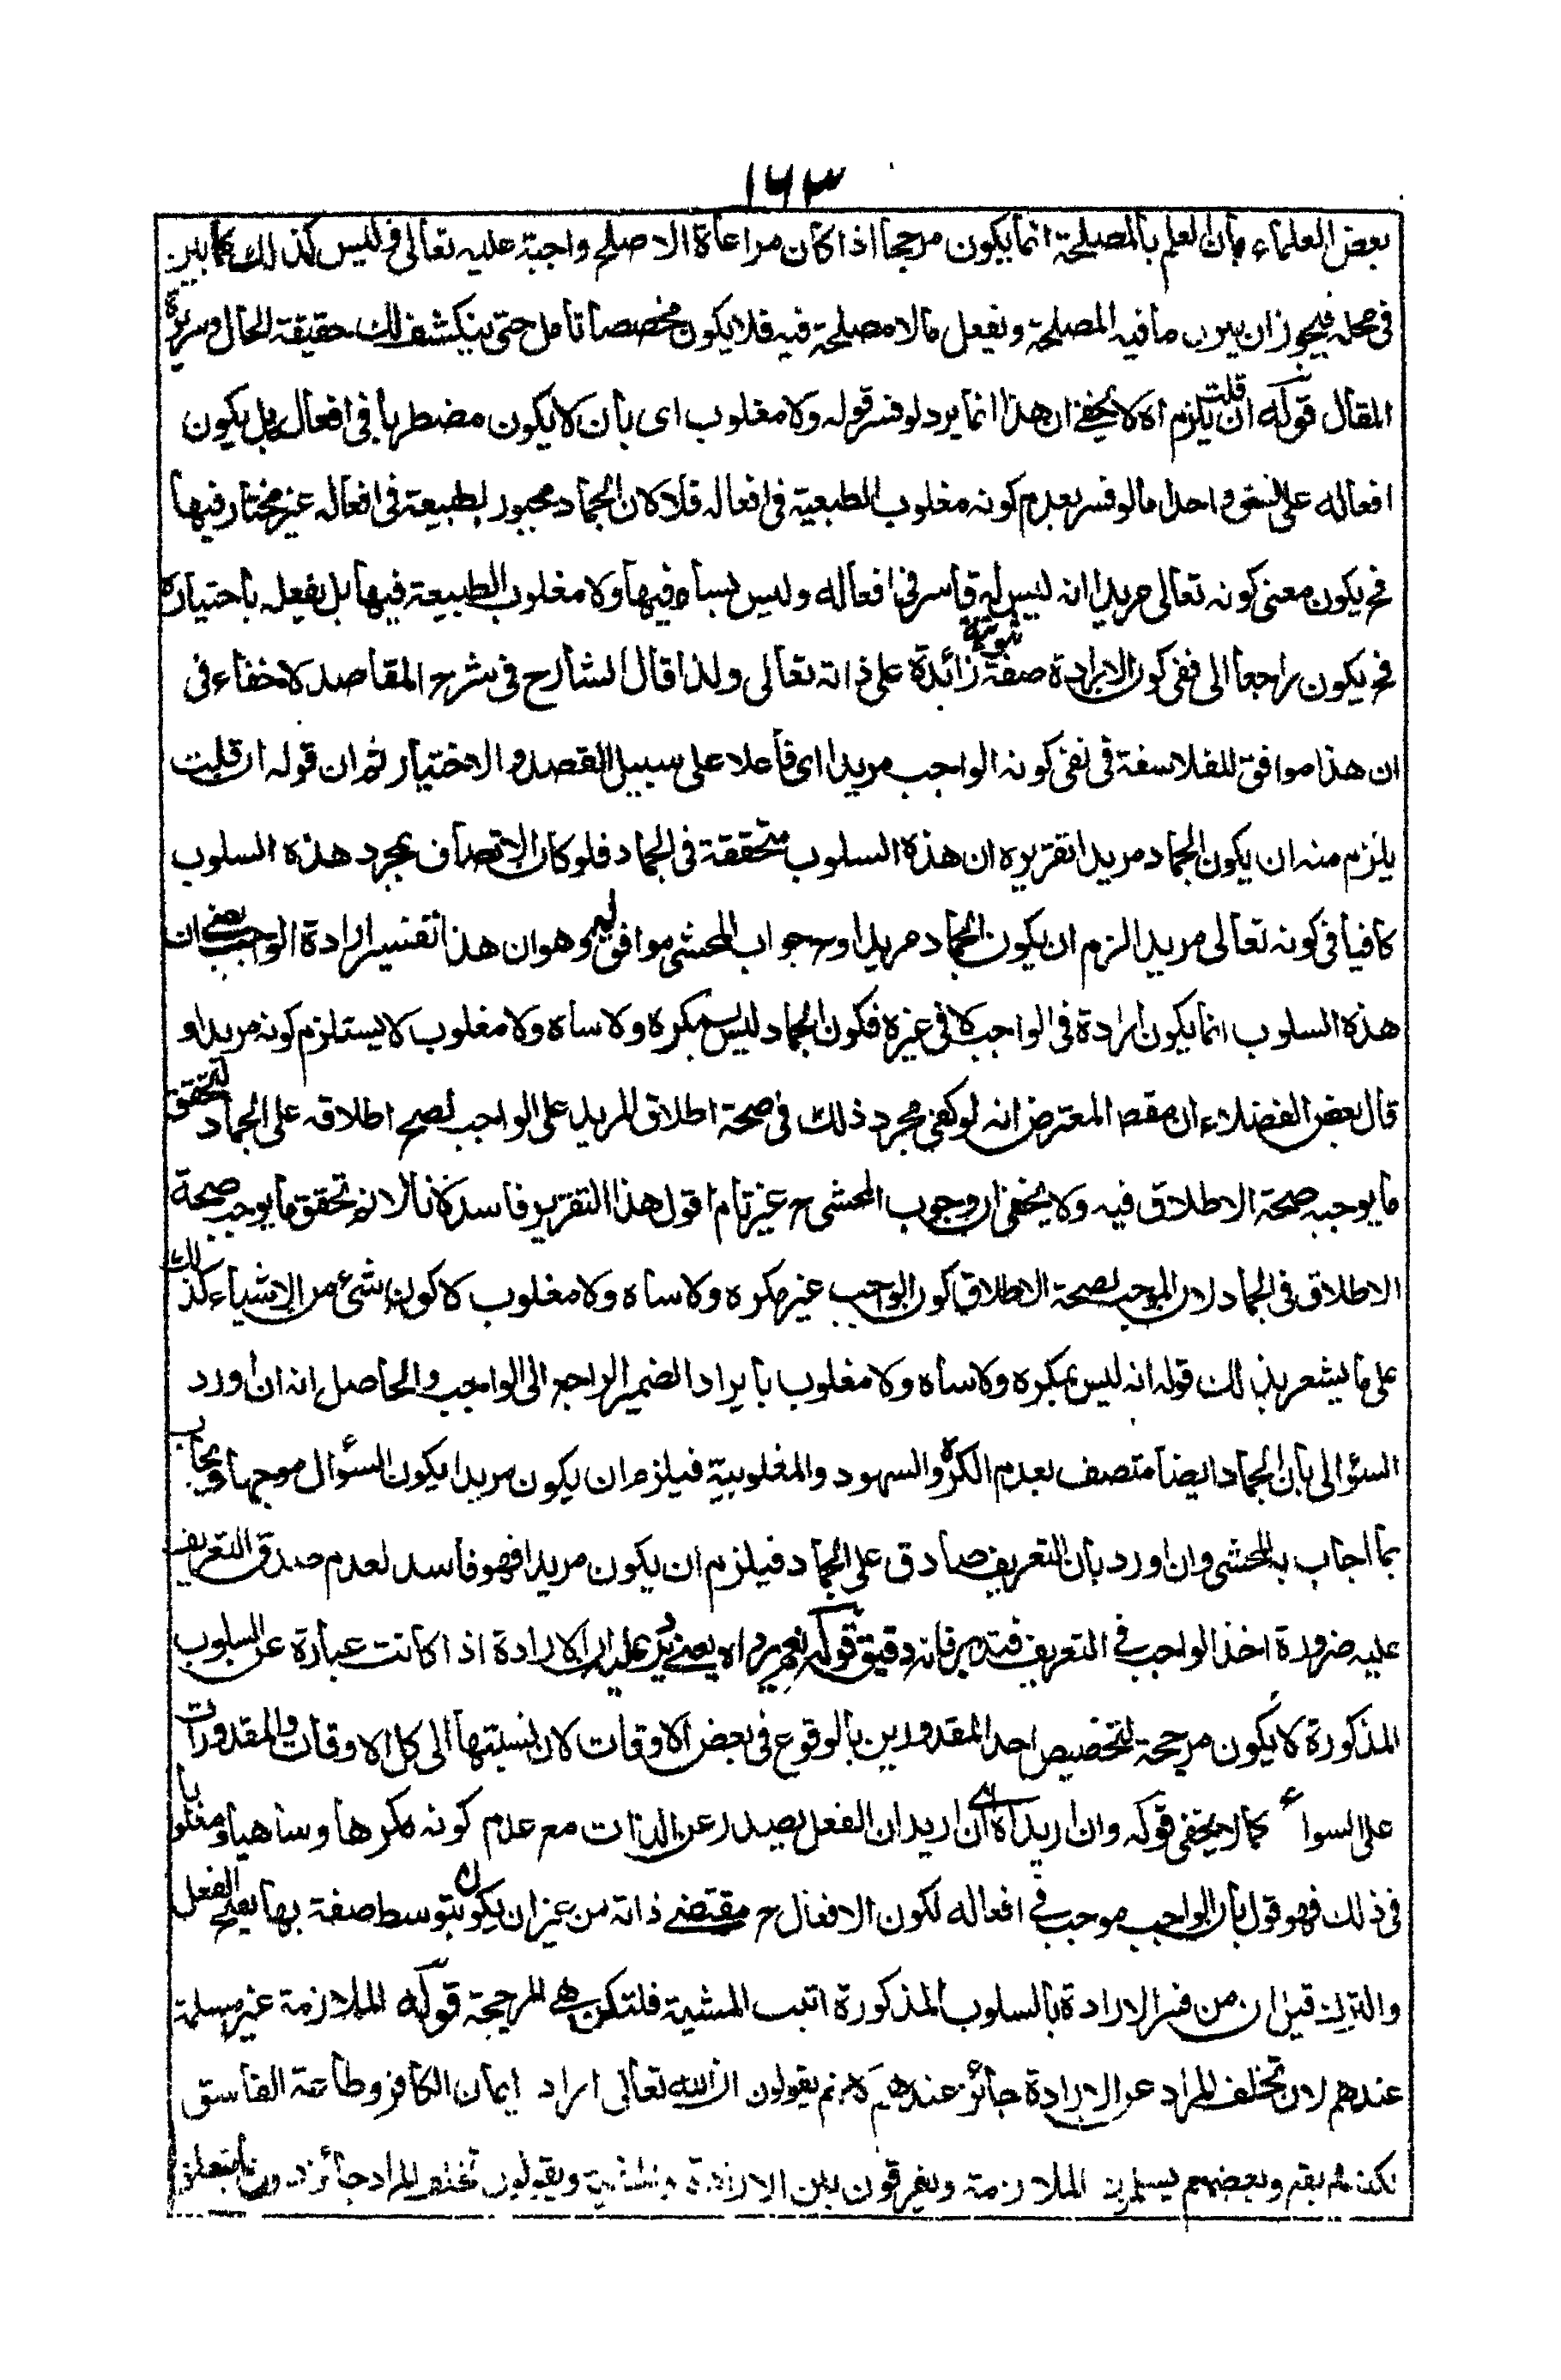 ١٦٣
بعض العلماء بأن العلم بالمصلحة انما يكون مرجحا اذا كان مراعاة الاصلح واجبة عليه تعالى وليس كذلك كما بين
فى محله فيجوز ان يترك ما فيه المصلحة ويفعل ما لا مصلحة فيه فلا يكون مخصصا تامل حتى ينكشف لك حقيقة الحال وسريرة
المقال قوله ان قلت يلزم اه لا يخفى ان هذا انما يرد لو فسر قوله ولا مغلوب اى بأن لا يكون مضطربا فى افعاله بل يكون
افعاله على نسق واحد اما لو فسر بعدم كونه مغلوب الطبعية فى افعاله فلا كان الجماد مجبور لطبيعة فى افعاله غير مختار فيها
فح يكون معنى كونه تعالى مريدا انه ليس له قاسر فى افعاله وليس بساه فيها ولا مغلوب الطبيعة فيها بل يفعله باختياره
فح يكون راجعا الى نفى كون الارادة صفة ثبوتية زائدة على ذاته تعالى ولذا قال الشارح فى شرح المقاصد لا خفاء فى
ان هذا موافق للفلاسفة فى نفى كونه الواجب مريدا اى فاعلا على سبيل القصد و الاختيار ثم ان قوله ان قلت
يلزم منه ان يكون الجماد مريدا تقريره ان هذه السلوب متحققة فى الجماد فلو كان الاتصاف بمجرد هذه السلوب
كافيا فى كونه تعالى مريدا لزم ان يكون الجماد مريدا وح جواب المحشى موافق له وهو ان هذا تفسير ارادة الواجب يعنى ان
هذه السلوب انما يكون ارادة فى الواجب لا فى غيره فكون الجماد ليس بمكره ولا ساه ولا مغلوب لا يستلزم كونه مريدا و
قال بعض الفضلاء ان مقصد المعترض انه لو كفى مجرد ذلك فى صحة اطلاق المريد على الواجب لصح اطلاقه على الجماد لتحقق
ما يوجبه صحة الاطلاق فيه ولا يخفى ان وجوب المحشى ح غير تام اقول هذا التقرير فاسد لانا لا نم تحقق ما يوجب صحة
الاطلاق فى الجماد لان الموجب لصحة الاطلاق كون الواجب غير مكره ولا ساه ولا مغلوب لا كون شئ من الاشياء كذلك
على ما يشعر بذلك قوله انه ليس بمكره ولا ساه ولا مغلوب بايراد الضمير الراجع الى الواجب والحاصل انه ان اورد
السؤال بأن الجماد ايضا متصف بعدم الكره والسهود والمغلوبية فيلزم ان يكون مريدا يكون السؤال موجها ويجاب
بما اجاب به المحشى وان اورد بأن التعريف صادق على الجماد فيلزم ان يكون مريدا فهو فاسد لعدم صدق التعريف
عليه ضرورة اخذ الواجب فى التعريف فتدبر فانه دقيق قوله نعم يرد اه يعنى يرد عليه ان الارادة اذا كانت عبارة عن السلوب
المذكورة لا يكون مرجحة لتخصيص احد المقدورين بالوقوع فى بعض الاوقات لان نسبتها الى كل الاوقات والمقدورات
على السواء كما لا يخفى قوله وان اريد اه اى ان اريد ان الفعل يصدر عن الذات مع عدم كونه مكرها وساهيا ومغلوبا
فى ذلك فهو قول بأن الواجب موجب فى افعاله لكون الافعال ح مقتضى ذاته من غير ان يكون بتوسط صفة بها يصح الفعل
والترك قيل ان من فسر الارادة بالسلوب المذكورة اثبت المشية فلتكن هى المرجحة قوله الملازمة غير مسلمة
عندهم لان تخلف المراد عن الارادة جائز عندهم لانهم يقولون ان الله تعالى اراد ايمان الكافر وطاعة الفاسق
لكنه لم يقع وبعضهم يسلمون الملازمة ويفرقون بين الارادة والمشية ويقولون تخلف المراد جائز دون ما يتعلق